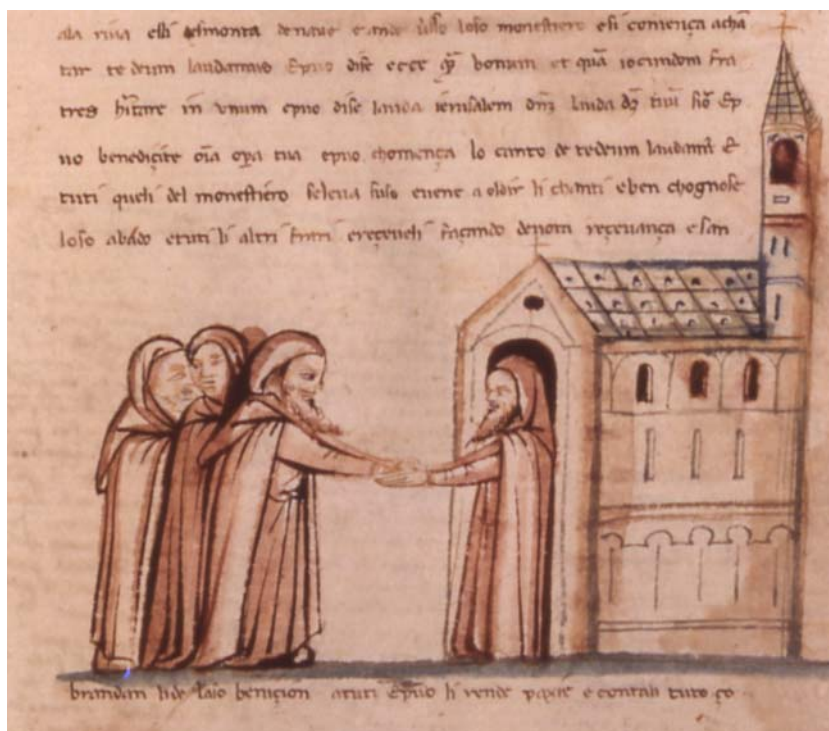 ala riva elli desmonta de nave e ande suso loso monestiero e si comença a chã
tar te deum laudamus Epuo dise ecce q̃ bonum et quã iocundum fra
tres h̃itare in unum epuo dise lauda ierusalem dñz lauda dz̃ tuũ siõ Ep
uo benediçite oĩa op̃a tua epuo chomença lo canto de tedeum laudamꝰ e
tuti queli del monestiero seleva suso evene a oldir li chanti e ben chognose
loso abado e tuti li altri frari e reçeveli façando devota reçevança e san
brandan li de laso beniçion a tuti Epuo li rende paxie e contali tuto ço